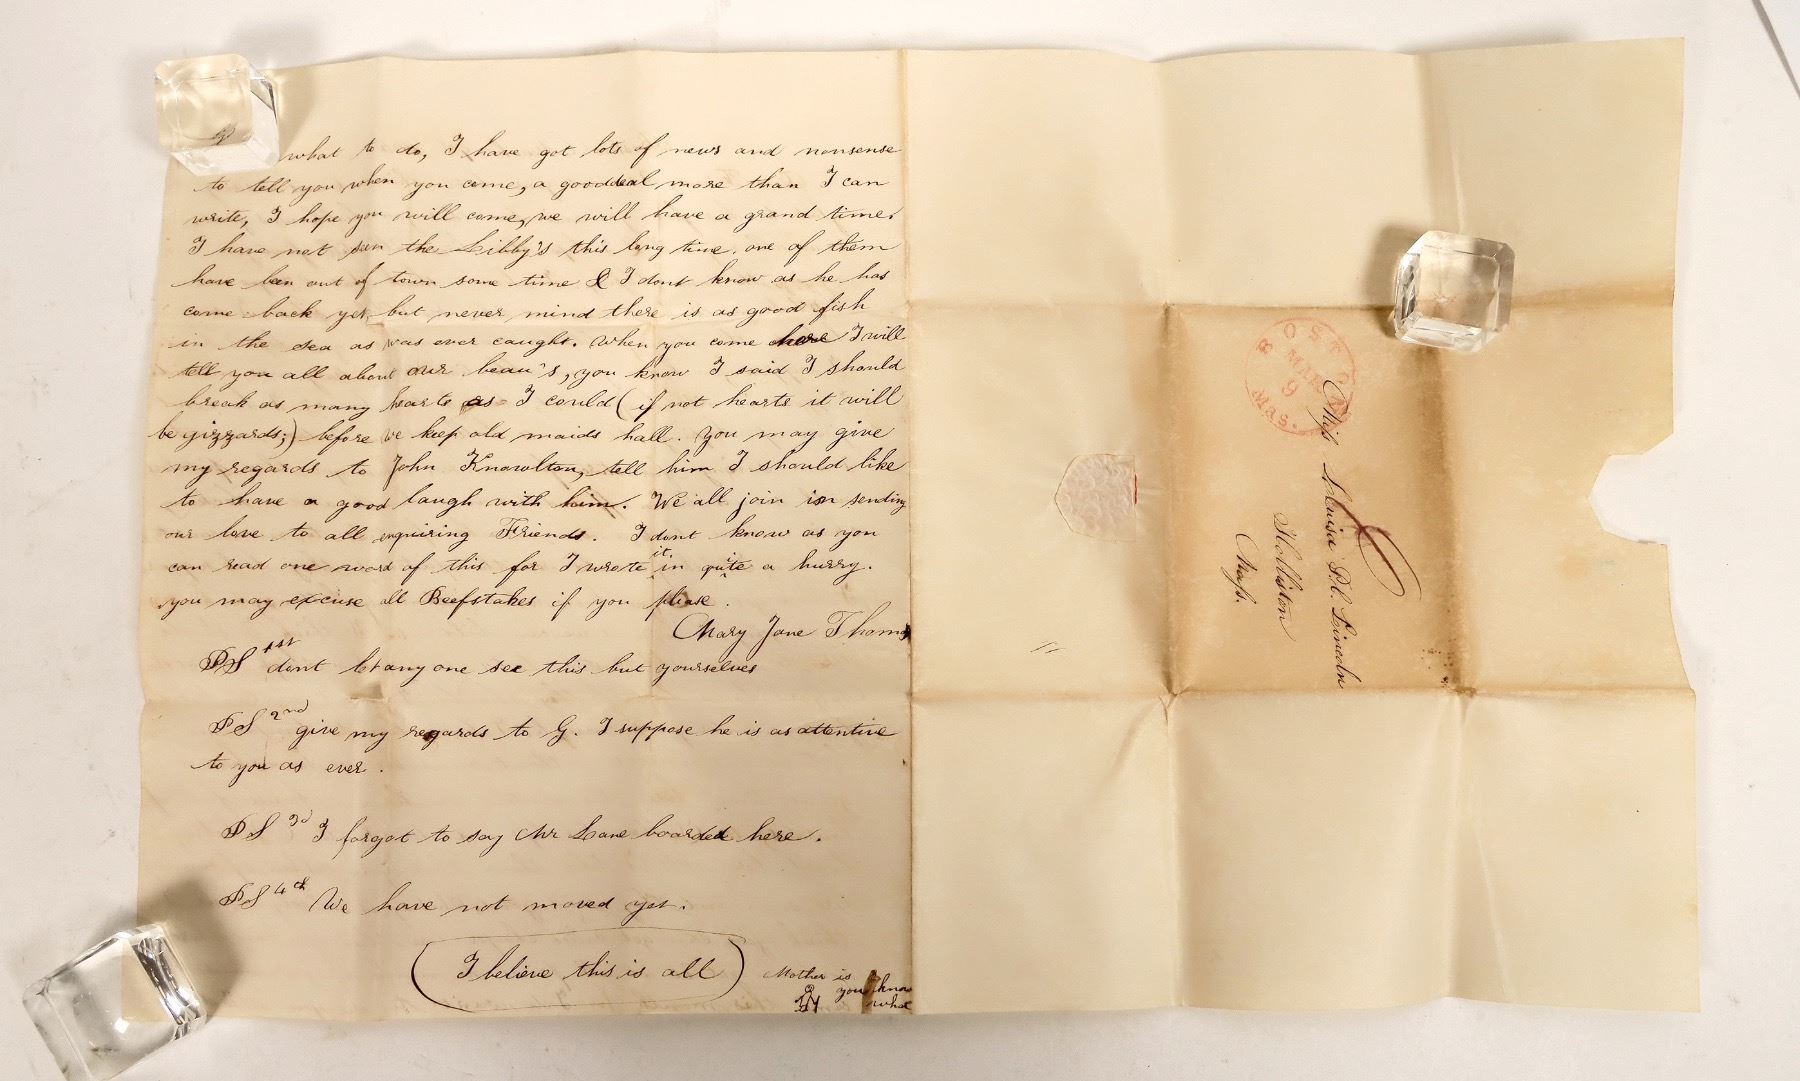 what to do, I have got lots of news and nonsense
to tell you when you come, a good deal more than I can
write, I hope you will come, we will have a grand time.
I have not seen the Libby's this long time. one of them
have been out of town some time & I dont know as he has
come back yet, but never mind there is as good fish
in the sea as was ever caught. When you come here I will
tell you all about our beau's, you know I said I should
break as many hearts as I could (if not hearts it will
be gizzards;) before we keep old maids hall. You may give
my regards to John Knowlton, tell him I should like
to have a good laugh with him. We all join in sending
our love to all enquiring Friends. I dont know as you
can read one word of this for I wrote it in quite a hurry.
you may excuse all Beefstakes if you please.
Mary Jane Thomas
PS 1st dont let any one see this but yourselves
PS 2nd give my regards to G. I suppose he is as attentive
to you as ever.
PS 3d I forgot to say Mr Lane boarded here.
PS 4th We have not moved yet.
I believe this is all
Mother is
you know
what
BOSTON
MAR
9
Mas.
6
Miss Louisa P. C. Lincoln
Holliston
Mass.